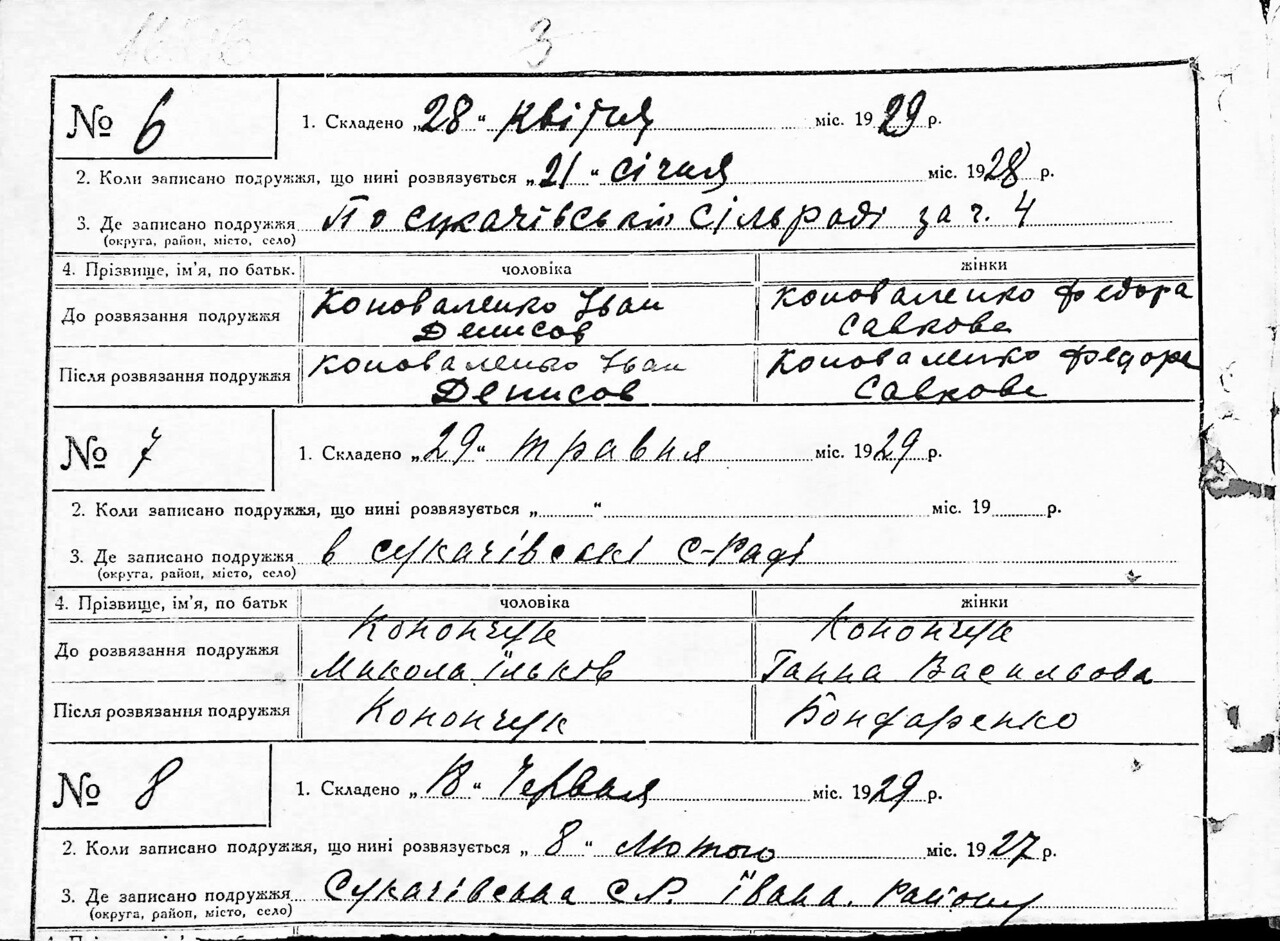 3
№ 6
1. Складено „28“ Квітня міс. 1929 р.
2. Коли записано подружжя, що нині розвязується „21“ січня міс. 1928 р.
3. Де записано подружжя По сукачівській сільраді за ч. 4
(округа, район, місто, село)
4. Прізвище, ім'я, по батьк. чоловіка жінки
До розвязання подружжя Коноваленко Іван Денисов Коноваленко Федора Савкова
Після розвязання подружжя Коноваленко Іван Денисов Коноваленко Федора Савкова
№ 7
1. Складено „29“ травня міс. 1929 р.
2. Коли записано подружжя, що нині розвязується „ “ міс. 19 р.
3. Де записано подружжя в сукачівські с-раді
(округа, район, місто, село)
4. Прізвище, ім'я, по батьк чоловіка жінки
До розвязання подружжя Конончук Микола Ільков Конончук Ганна Васильова
Після розвязання подружжя Конончук Бондаренко
№ 8
1. Складено „18“ Червня міс. 1929 р.
2. Коли записано подружжя, що нині розвязується „8“ Лютого міс. 1927 р.
3. Де записано подружжя Сукачівська с.Р. Івана. Району
(округа, район, місто, село)